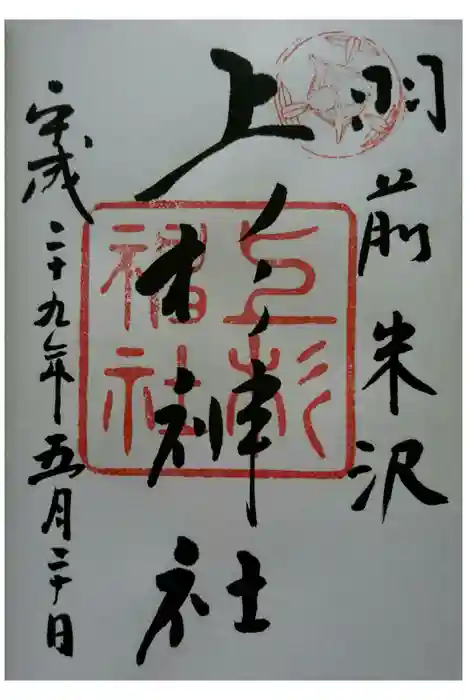 羽前米沢
上杉神社
上杉神社
平成二十九年五月二十日